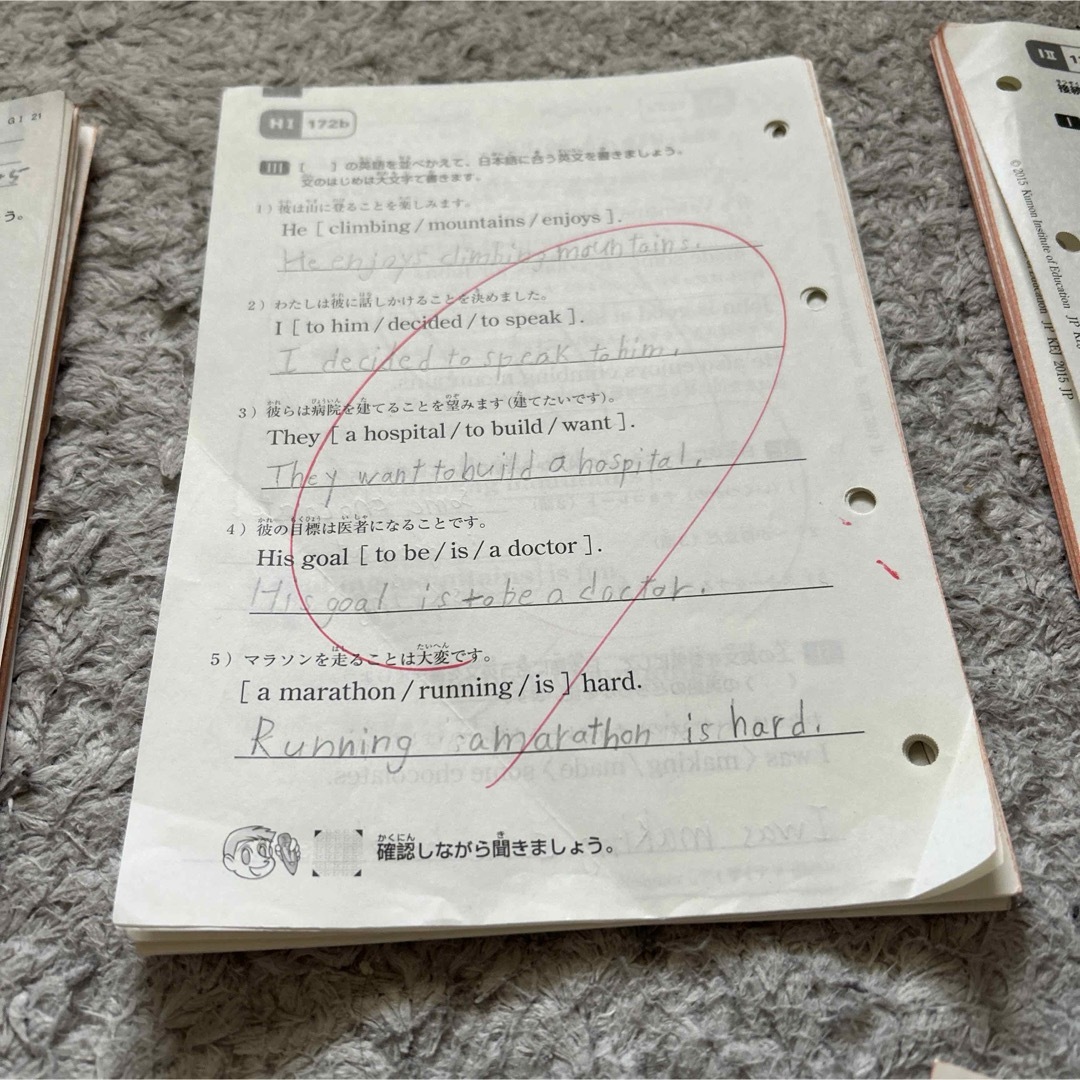 G I 21
う。
H I 172b
III [ ] の英語を並べかえて、日本語に合う英文を書きましょう。
文のはじめは大文字で書きます。
1）彼は山に登ることを楽しみます。
He [ climbing / mountains / enjoys ].
He enjoys climbing mountains.
2）わたしは彼に話しかけることを決めました。
I [ to him / decided / to speak ].
I decided to speak to him.
3）彼らは病院を建てることを望みます（建てたいです）。
They [ a hospital / to build / want ].
They want to build a hospital.
4）彼の目標は医者になることです。
His goal [ to be / is / a doctor ].
His goal is to be a doctor.
5）マラソンを走ることは大変です。
[ a marathon / running / is ] hard.
Running a marathon is hard.
確認しながら聞きましょう。
I II
I
© 2015 Kumon Institute of Education
JP KEJ 2015 JP